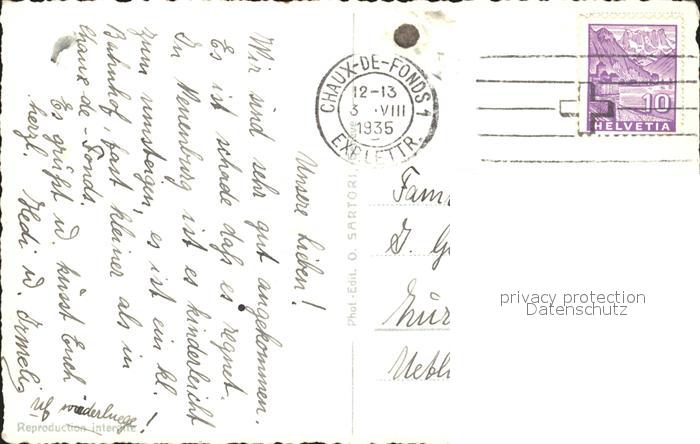 Unsere Lieben!
Wir sind sehr gut angekommen.
Es ist schade daß es regnet.
In Neuenburg ist es kinderleicht
zum umsteigen, es ist ein kl.
Bahnhof, fast kleiner als in
Chaux-de-Fonds.
Es grüßt u. küsst Euch
herzl. Hedi u. Irmeli
Uf wiederluege!
Reproduction interdite
Phot.-Edit. O. SARTORI,
CHAUX-DE-FONDS 1
12-13
3 VIII
1935
EXP. LETTR.
10
HELVETIA
Fam
J. G
Zür
Uetli
privacy protection
Datenschutz